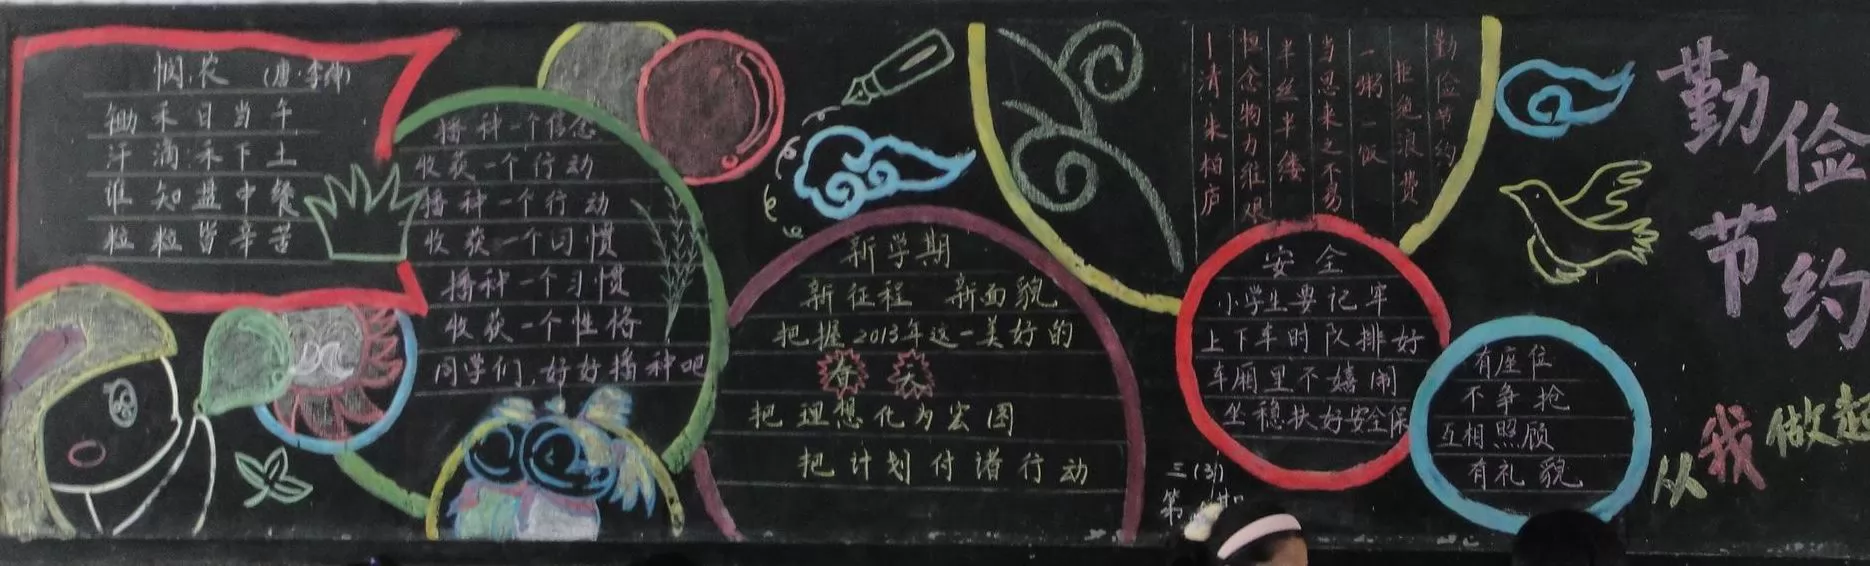 悯农 (唐·李绅)
锄禾日当午
汗滴禾下土
谁知盘中餐
粒粒皆辛苦
播种一个信念
收获一个行动
播种一个行动
收获一个习惯
播种一个习惯
收获一个性格
同学们,好好播种吧
新学期
新征程 新面貌
把握2013年这一美好的
春天
把理想化为宏图
把计划付诸行动
勤俭节约
拒绝浪费
一粥一饭
当思来之不易
半丝半缕
恒念物力维艰
—清·朱柏庐
安全
小学生要记牢
上下车时队排好
车厢里不嬉闹
坐稳扶好安全保
有座位
不争抢
互相照顾
有礼貌
三(3)
第
勤俭
节约
从我做起